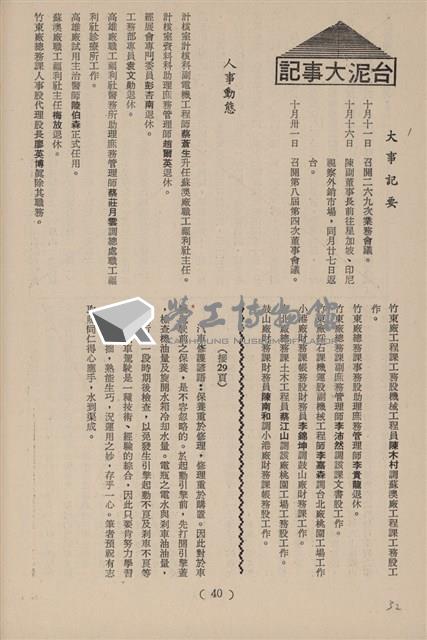 台泥大事記
大事記要
十月十一日　召開二六九次業務會議。
十月十六日　陳副董事長前往星加坡、印尼
視察外銷市場，同月廿七日返
台。
十月卅一日　召開第八屆第四次董事會議。
人事動態
計核室計核科副電機工程師蔡蒼生升任蘇澳廠職工福利社主任。
計核室資料科助理庶務管理師趙爾英退休。
經展會專門委員彭杏南退休。
工務部專員袁文勛退休。
高雄廠職工福利社醫務所助理庶務管理師蔡莊月雲調總處職工福
利社診療所工作。
高雄廠試用主治醫師陸伯森正式任用。
蘇澳廠職工福利社主任梅放退休。
竹東廠總務課人事股代理股長廖英博眞除其職務。
竹東廠工程課工務股機械工程員陳木村調蘇澳廠工程課工務股工
作。
竹東廠總務課事務股助理庶務管理師李貴龍退休。
竹東廠總務課副庶務管理師李沛然調該課文書股工作。
竹東廠採石課機運股副機械工程師李嘉森調台北廠桃園工場工作
小港廠財務課帳務股財務員李錦坤調鼓山廠財務課工作。
北廠總務課土木工程員蔡江山調該廠桃園工場工務股工作。
鼓山廠財務課財務員陳南和調小港廠財務課帳務股工作。
（接29頁）
汽車修護諺語：保養重於修理，修理重於購置。因此對於車
之保養，是不容忽略的。於起動引擎前，先打開引擎蓋
，檢查機油量及旋開水箱冷却水量。電瓶之電水與刹車油油量，
一段時期後檢查，以免發生引擎起動不良及刹車不良等
車駕駛是一種技術、經驗的綜合，因此只要肯努力學習
，熟能生巧，況運用之妙，存乎一心。筆者預祝有志
同仁得心應手，水到渠成。
勞工博物館
Kaohsiung Museum of Labor
( 40 )
52